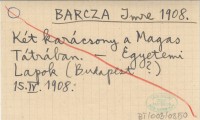 BARCZA Imre 1908.
Két karácsony a Magas
Tátrában. — Egyetemi
Lapok (Budapest?)
15. IV. 1908.